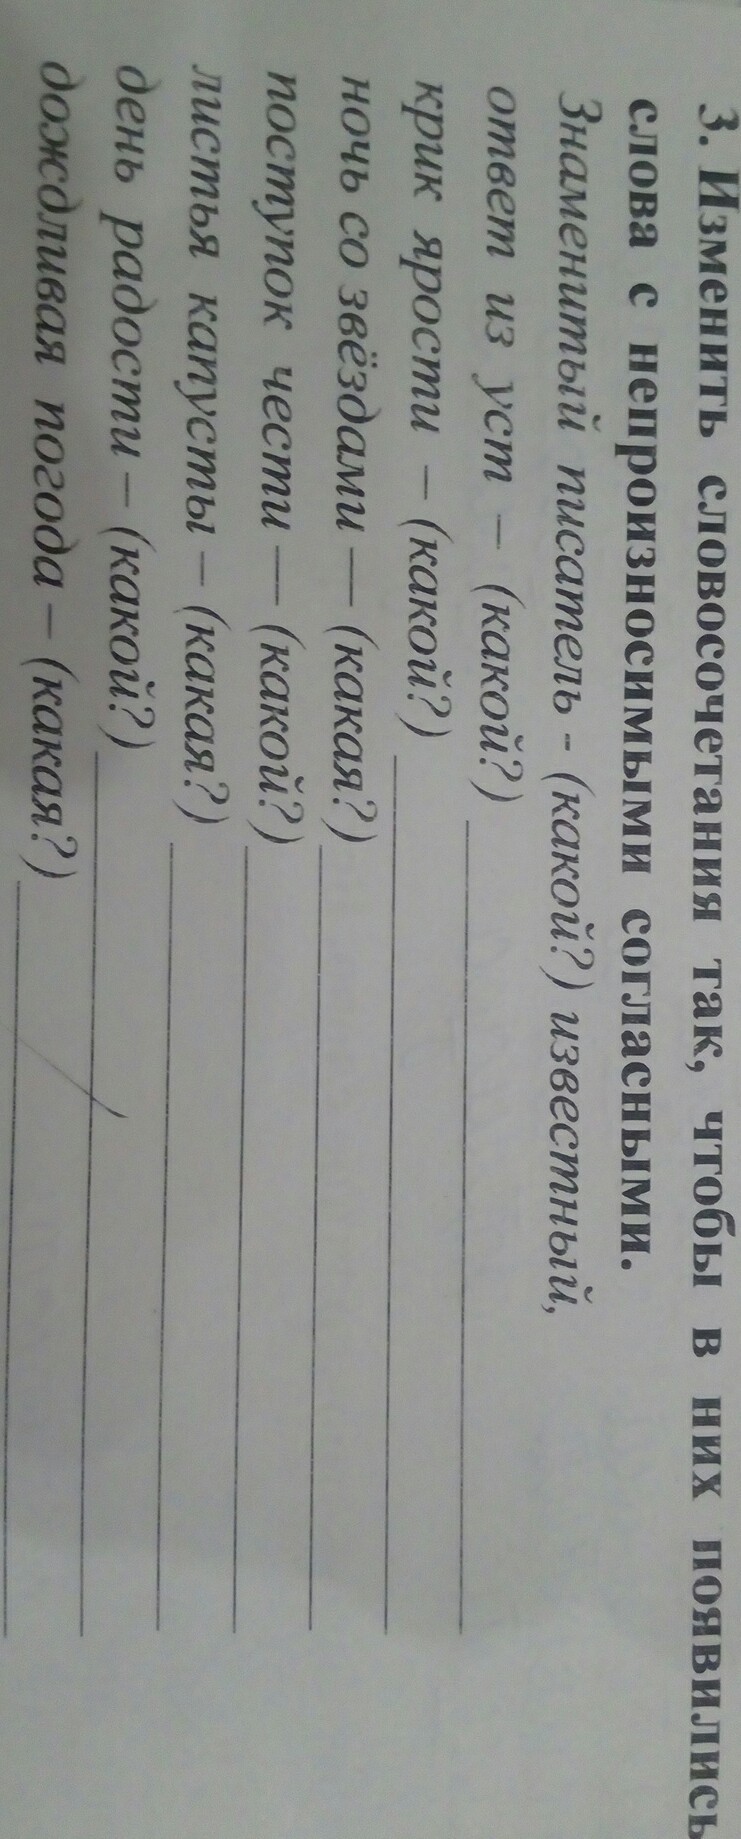 3. Изменить словосочетания так, чтобы в них появились
слова с непроизносимыми согласными.
Знаменитый писатель - (какой?) известный,
ответ из уст – (какой?)
крик ярости – (какой?)
ночь со звёздами — (какая?)
поступок чести — (какой?)
листья капусты – (какая?)
день радости – (какой?)
дождливая погода – (какая?)